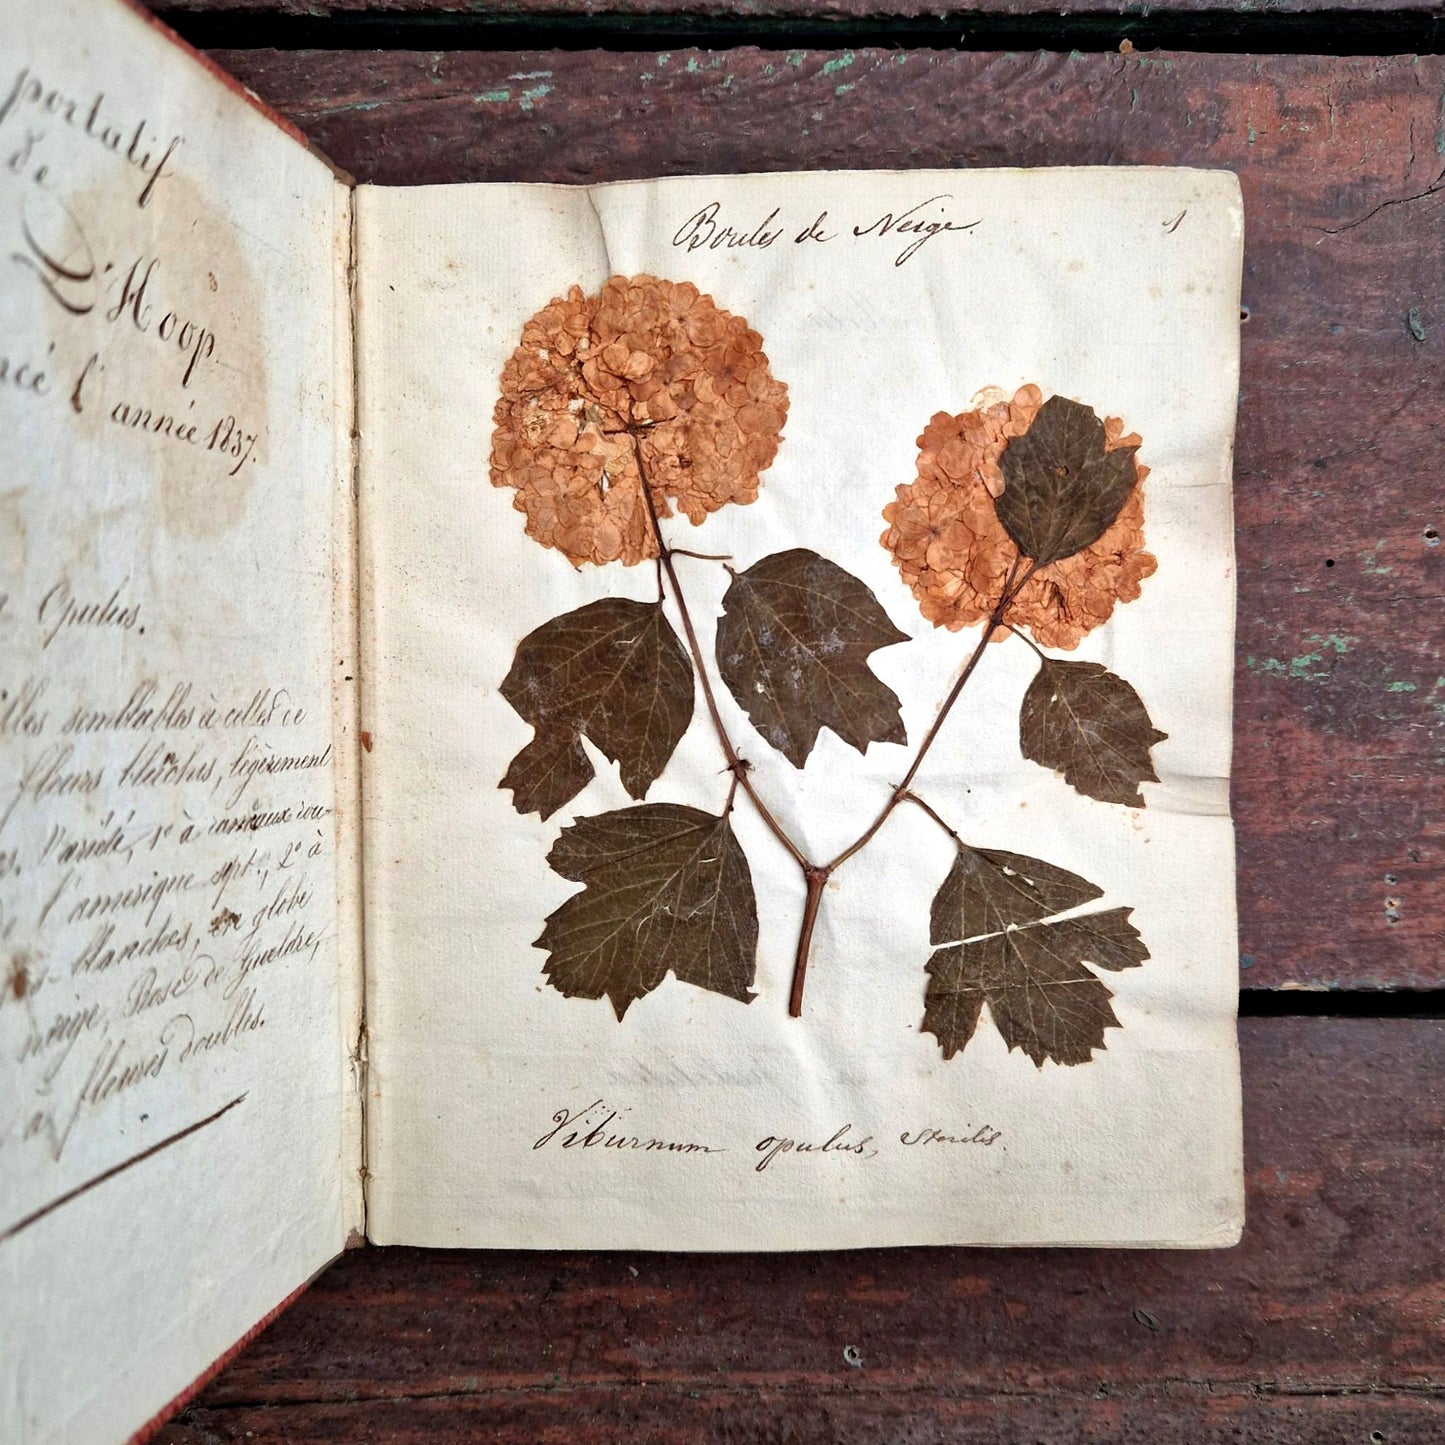 portatif
de
D'Hoop
l'année 1837.
Opulus.
semblables à celles de
fleurs blanches, légèrement
Variété, 1° à rameaux rou-
de l'amerique sept., 2° à
blanches, en globe
neige, Rose de Gueldre,
à fleurs doubles.
Boules de Neige.
1
Viburnum opulus, sterilis.